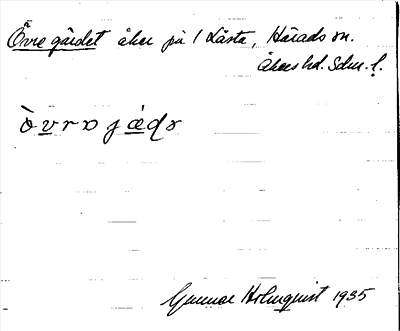 Övre gärdet åker på 1 Låsta, Härads sn.
Åkers hd. Sdm. l.
Gunnar Holmquist 1935